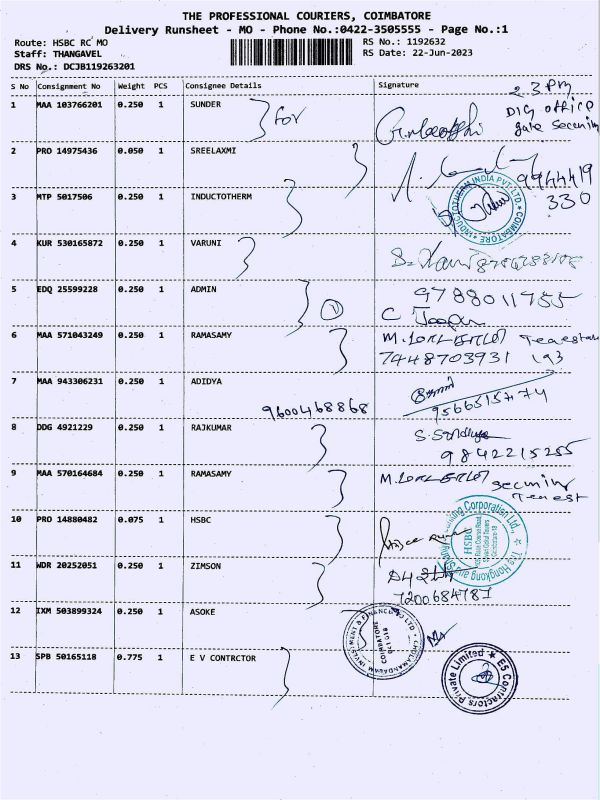 THE PROFESSIONAL COURIERS, COIMBATORE
Delivery Runsheet - MO - Phone No.:0422-3505555 - Page No.:1
Route: HSBC RC MO
RS No.: 1192632
Staff: THANGAVEL
RS Date: 22-Jun-2023
DRS No.: DCJB119263201
S No Consignment No Weight PCS Consignee Details Signature
2 3 PM
1 MAA 103766201 0.250 1 SUNDER for
DIG office
gate
2 PRO 14975436 0.050 1 SREELAXMI
9944419
330
3 MTP 5017506 0.250 1 INDUCTOTHERM
INDUCTOTHERM INDIA PVT. LTD. * COIMBATORE *
4 KUR 530165872 0.250 1 VARUNI
5 EDQ 25599228 0.250 1 ADMIN
9788011755
6 MAA 571043249 0.250 1 RAMASAMY
7448703931
7 MAA 943306231 0.250 1 ADIDYA
9600468868
8 DDG 4921229 0.250 1 RAJKUMAR
9842215255
9 MAA 570164684 0.250 1 RAMASAMY
10 PRO 14880482 0.075 1 HSBC
The Hongkong and Shanghai Banking Corporation Ltd.,
HSBC
11 WDR 20252051 0.250 1 ZIMSON
7200684781
12 IXM 503899324 0.250 1 ASOKE
CHOLAMANDALAM INVESTMENT & FINANCE CO LTD
COIMBATORE
13 SPB 50165118 0.775 1 E V CONTRCTOR
ES Contractors Private Limited